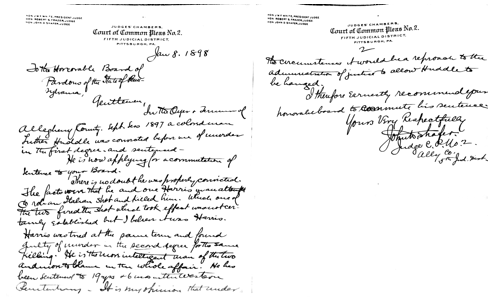 JUDGES CHAMBERS,
Court of Common Pleas No. 2.
FIFTH JUDICIAL DISTRICT,
PITTSBURG, PA.
Jan 8. 1898
To the Honorable Board of
Pardons of the State of Penn-
sylvania,
Gentlemen,
In the Oyer & Terminer of
Allegheny County, Sept. Sess 1897 a colored man
Luther Huddle was convicted before me of murder
in the first degree, and sentenced —
He is now applying for a commutation of
sentence to your Board.
There is no doubt he was properly convicted.
The facts were that he and one Harris
an Italian shot and killed him. Which one of
the two fired the shot that took effect was not cer-
tainly established but I believe it was Harris.
Harris was tried at the same term and found
guilty of murder in the second degree for the same
killing. He is the more intelligent man of the two
and more to blame in the whole affair. He has
been sentenced to 19 yrs & 6 months in the Western
Penitentiary — It is my opinion that under
JUDGES CHAMBERS,
Court of Common Pleas No. 2.
FIFTH JUDICIAL DISTRICT,
PITTSBURG, PA.
2
the circumstances it would be a reproach to the
administration of justice to allow Huddle to
be hanged.
I therefore earnestly recommend your
honorable board to commute his sentence
Yours Very Respectfully
John M. Shafer.
Judge C. P. No. 2
Alleg Co.
5th Jud. Dist.